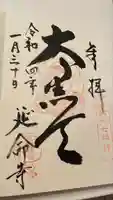 奉拝
大黒天
令和四年
一月三十日
延命寺